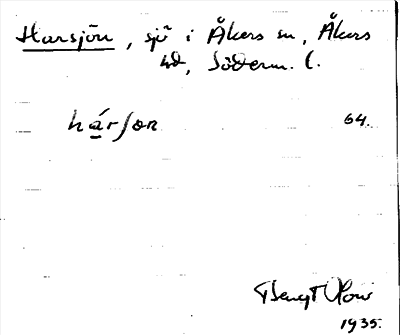 Harsjön, sjö i Åkers sn, Åkers
hd, Söderm. l.
hárſɷn 64.
Bengt
1935.